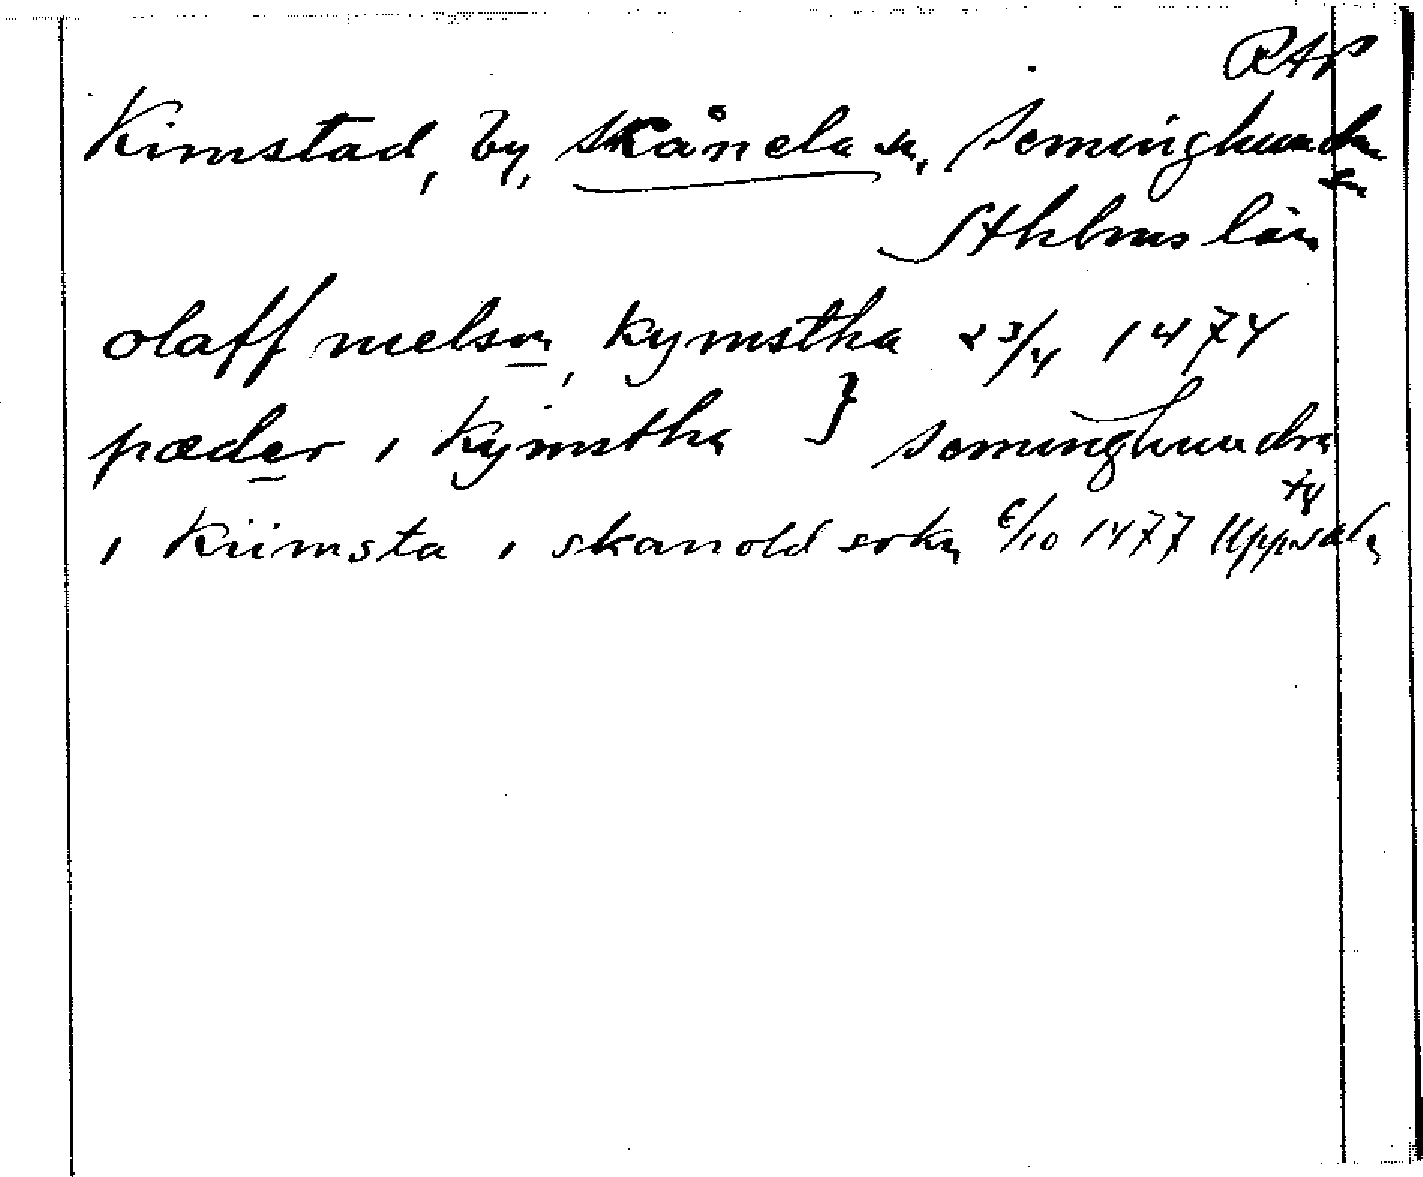 RAP
Kimstad, by, Skånela sn, Seminghundra
Sthlms län
olaff nielson, kymstha 23/4 1474
pæder i kymstha } seminghundra
i Kiimsta i skanold sokn 6/10 1477 Uppsala